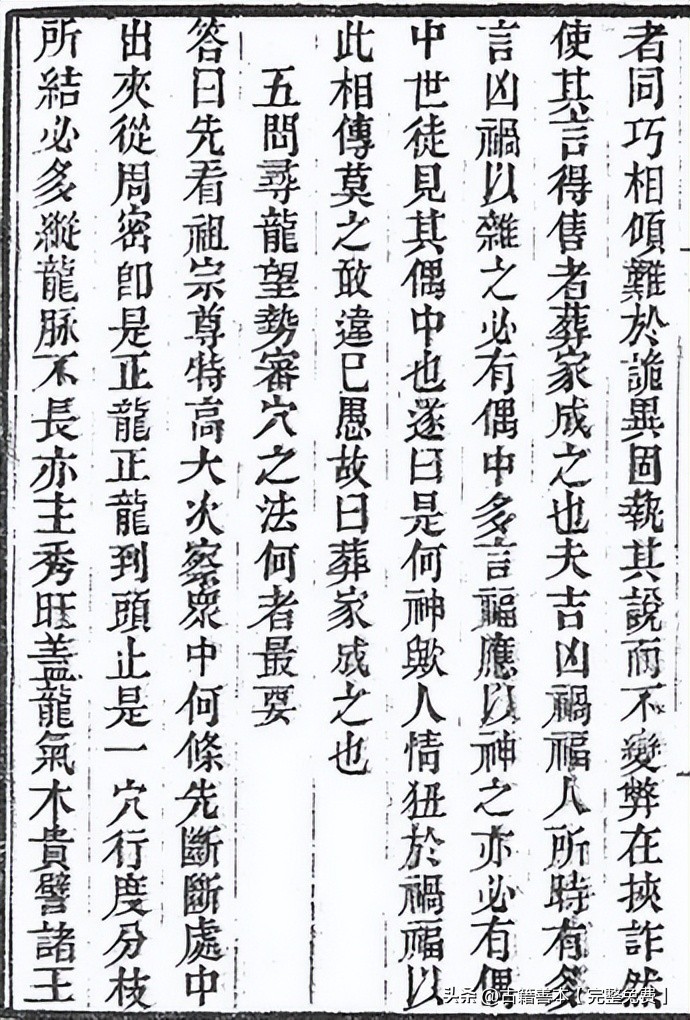 者同巧相傾難於詭異固執其說而不變弊在挾詐然
使其言得售者葬家成之也夫吉凶禍福人所時有多
言凶禍以雜之必有偶中多言福應以神之亦必有偶
中世徒見其偶中也遂曰是何神歟人情狃於禍福以
此相傳莫之敢違已愚故曰葬家成之也
五問尋龍望勢審穴之法何者最要
答曰先看祖宗尊特高大次察衆中何條先斷斷處中
出夾從周密卽是正龍正龍到頭止是一穴行度分枝
所結必多縱龍脉不長亦主秀旺蓋龍氣木貴譬諸王
头条@古籍善本【完整免费】